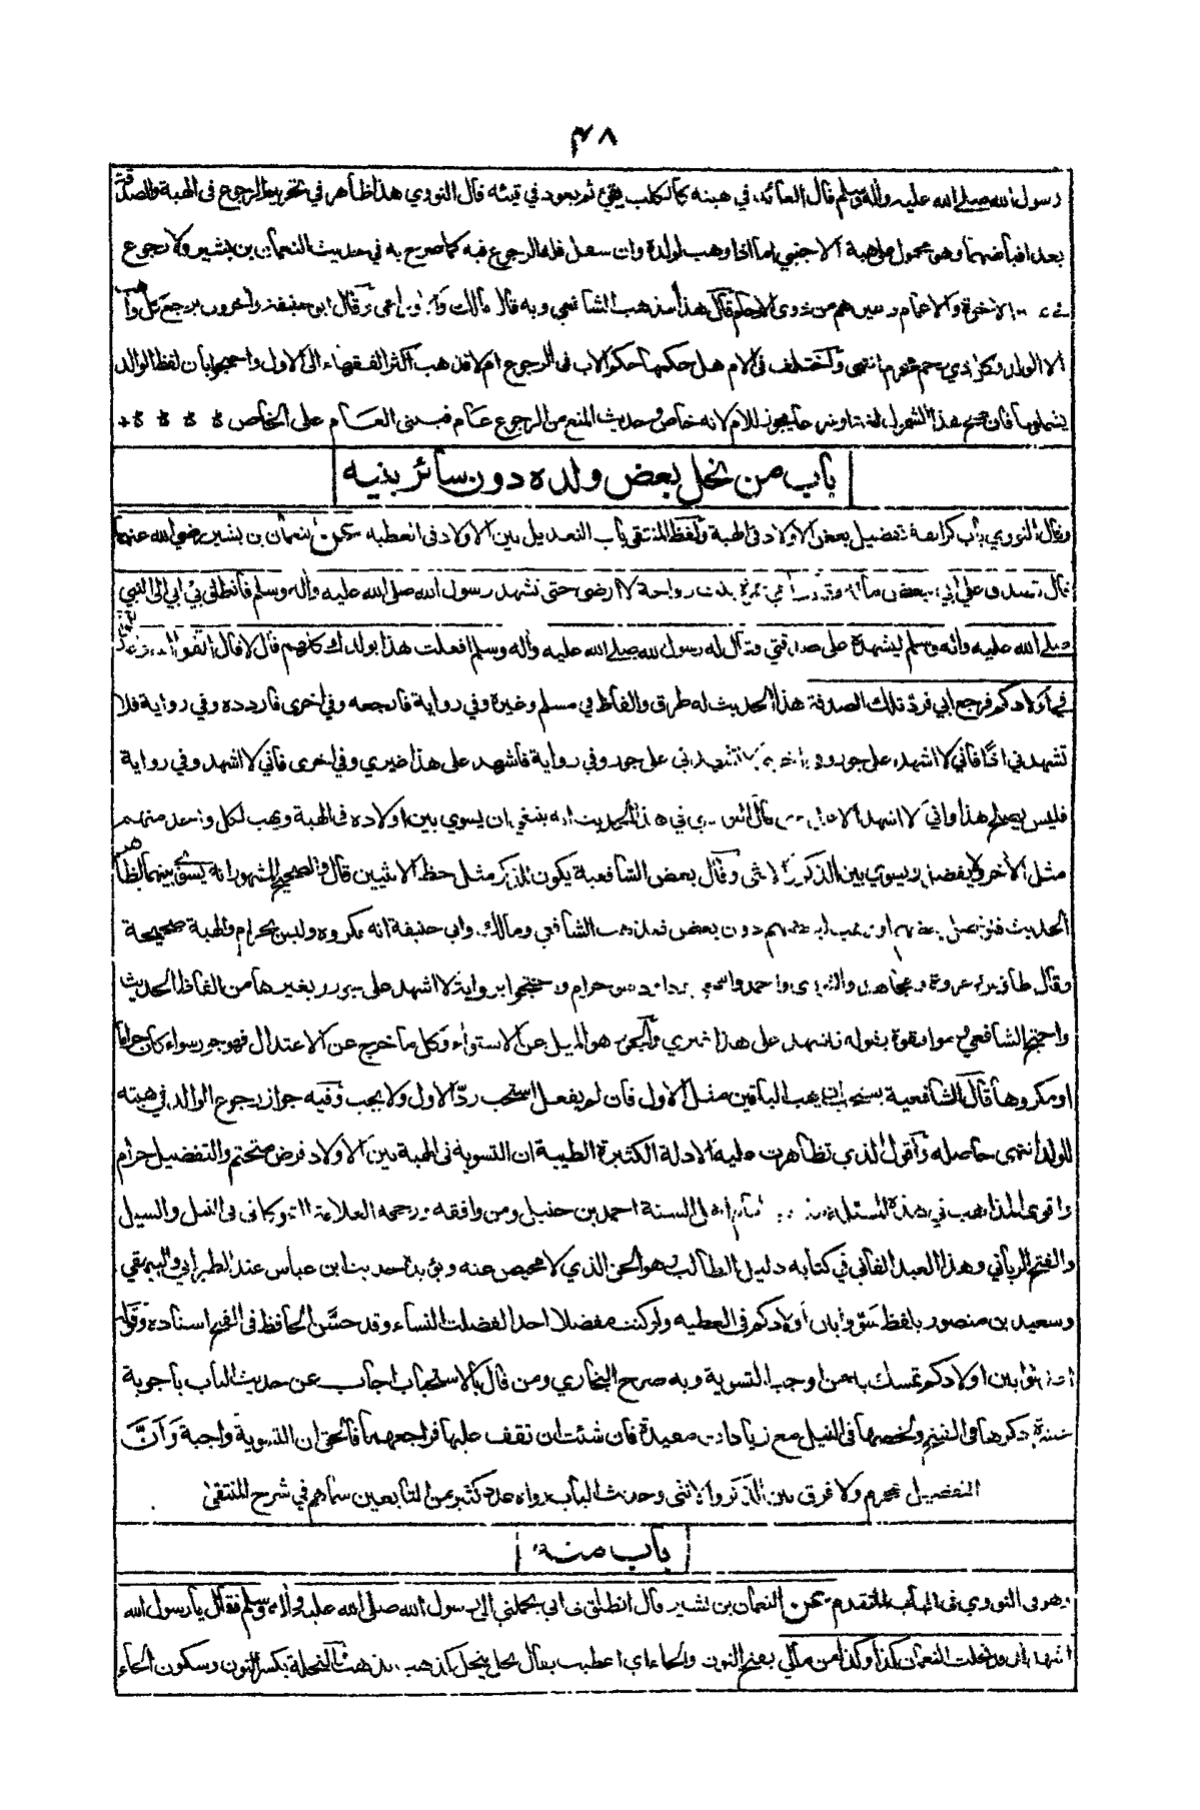 ٣٨
رسول الله صلى الله عليه وآله وسلم قال العائد في هبته كالكلب يقيئ ثم يعود في قيئه قال النووي هذا ظاهر في تحريم الرجوع في الهبة والصدقة
بعد اقباضهما وهو محمول على هبة الاجنبي اما اذا وهب لولده وان سفل فله الرجوع فيه كما صرح به في حديث النعمان بن بشير ولا رجوع
في الاخوة والاعمام وغيرهم من ذوى الارحام قال هذا مذهب الشافعي وبه قال مالك والاوزاعي وقال ابو حنيفة واخرون يرجع كل واهب
الا الوالد وكل ذي رحم محرم انتهى وأختلف في الام هل حكمها حكم الاب في الرجوع ام لا فذهب أكثر الفقهاء الى الاول واحتجوا بان لفظ الوالد
يشملها فان صح هذا الشمول لغة او شرعا يجوز للام لانه خاص وحديث المنع من الرجوع عام فيبنى العام على الخاص
باب من نحل بعض ولده دون سائر بنيه
وقال النووي باب كراهة تفضيل بعض الاولاد في الهبة ولفظ المنتقى باب التعديل بين الاولاد في العطية عن النعمان بن بشير رضي الله عنهما
قال تصدق علي ابي ببعض ماله فقالت امي عمرة بنت رواحة لا ارضى حتى تشهد رسول الله صلى الله عليه وآله وسلم فانطلق بي ابي الى النبي
صلى الله عليه وآله وسلم ليشهده على صدقتي فقال له رسول الله صلى الله عليه وآله وسلم افعلت هذا بولدك كلهم قال لا قال اتقوا الله واعدلوا
في أولادكم فرجع ابي فرد تلك الصدقة هذا الحديث له طرق والفاظ في مسلم وغيره وفي رواية فارجعه وفي اخرى فاردده وفي رواية فلا
تشهدني اذًا فاني لا اشهد على جور وفي اخرى لا تشهدني على جور وفي رواية فاشهد على هذا غيري وفي اخرى فاني لا اشهد وفي رواية
فليس يصلح هذا واني لا اشهد الا على حق قال النووي في هذا الحديث انه ينبغي ان يسوي بين اولاده في الهبة ويهب لكل واحد منهم
مثل الأخر ولا يفضل ويسوي بين الذكر والانثى وقال بعض الشافعية يكون للذكر مثل حظ الانثيين قال والصحيح المشهور انه يسوي بينهما لظاهر
الحديث فلو فضل بعضهم او وهب لبعضهم دون بعض فمذهب الشافعي ومالك وابي حنيفة انه مكروه وليس بحرام والهبة صحيحة
وقال طاؤس وعروة ومجاهد والثوري واحمد واسحق وداود هو حرام واحتجوا برواية لا اشهد على جور وبغيرها من الفاظ الحديث
واحتج الشافعي وموافقوه بقوله فاشهد على هذا غيري وألجور هو الميل عن الاستواء وكل ما خرج عن الاعتدال فهو جور سواء كان حراما
او مكروها قال الشافعية يستحب ان يهب الباقين مثل الاول فان لم يفعل استحب ردّ الاول ولا يجب وفيه جواز رجوع الوالد في هبته
للولد انتهى حاصله وأقول الذي تظاهرت عليه الادلة الكثيرة الطيبة ان التسوية في الهبة بين الاولاد فرض متحتم والتفضيل حرام
واقوى المذاهب في هذه المسئلة اهل السنة احمد بن حنبل ومن وافقه ورجحه العلامة الشوكاني في النيل والسيل
والفتح الرباني وهذا العبد الفاني في كتابه دليل الطالب وهو الحق الذي لا محيص عنه ويؤيده حديث ابن عباس عند الطبراني والبيهقي
وسعيد بن منصور بلفظ سَوُّوا بين أولادكم في العطية ولو كنت مفضلا احدا لفضلت النساء وقد حسّن الحافظ في الفتح اسناده وقوله
اعدلوا بين اولادكم تمسك به من اوجب التسوية وبه صرح البخاري ومن قال بالاستحباب اجاب عن حديث الباب بأجوبة
عشرة ذكرها في الفتح ولخصها في النيل مع زيادات مفيدة فان شئت ان تقف عليها فراجعهما فالحق ان التسوية واجبة وَأنَّ
التفضيل محرم ولا فرق بين الذكر والانثى وحديث الباب رواه عدد كثير من التابعين سماهم في شرح المنتقى
باب منه
وهو في النووي في الباب المتقدم عن النعمان بن بشير قال انطلق بي ابي يحملني الى رسول الله صلى الله عليه وآله وسلم فقال يا رسول الله
اشهد اني قد نحلت النعمان كذا وكذا من مالي بفتح النون والحاء اي اعطيت يقال نحل ينحل كذهب يذهب والنحلة بكسر النون وسكون الحاء